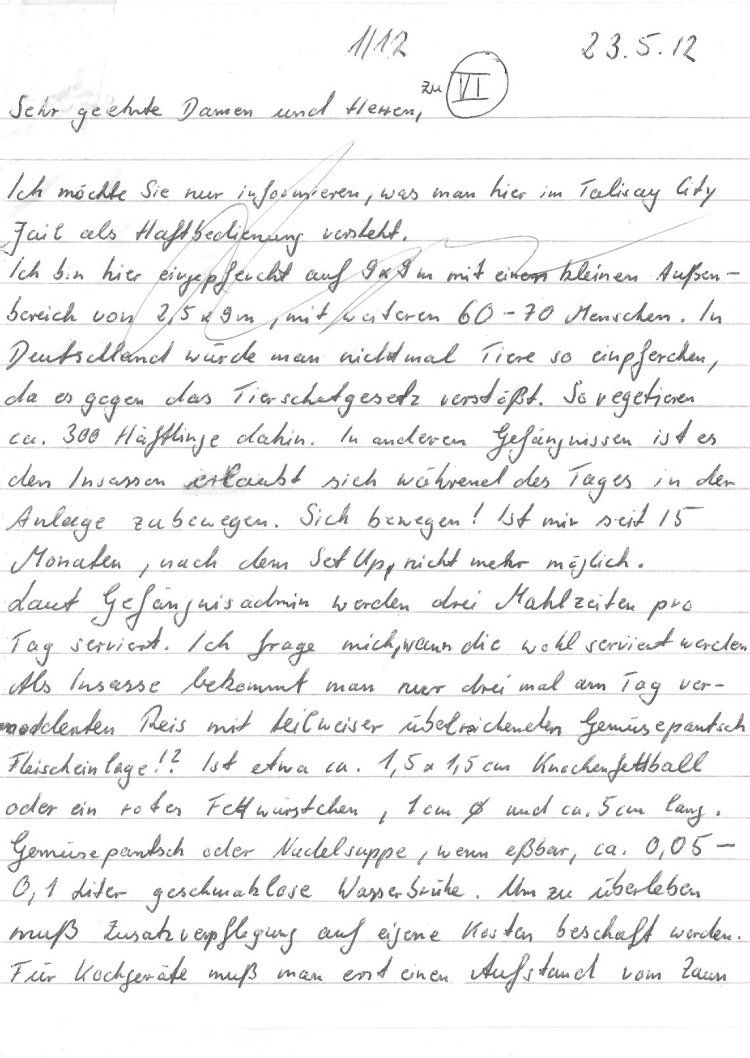 1/12 23.5.12
zu VI
Sehr geehrte Damen und Herren,
Ich möchte Sie nur informieren, was man hier im Talisay City
Jail als Haftbedienung versteht.
Ich bin hier eingepfercht auf 9x9m mit einem kleinen Außen-
bereich von 2,5 x 9m, mit weiteren 60-70 Menschen. In
Deutschland würde man nichtmal Tiere so einpferchen,
da es gegen das Tierschutgesetz verstößt. So vegetieren
ca. 300 Häftlinge dahin. In anderen Gefängnissen ist es
den Insassen erlaubt sich während des Tages in der
Anlage zubewegen. Sich bewegen! Ist mir seit 15
Monaten, nach dem SetUp, nicht mehr möglich.
Laut Gefängnisadmin werden drei Mahlzeiten pro
Tag serviert. Ich frage mich, wann die wohl serviert werden
Als Insasse bekommt man nur drei mal am Tag ver-
Reis mit teilweiser Gemüsepantsch
Fleischeinlage!? Ist etwa ca. 1,5 x 1,5 cm Knochenfettball
oder ein rotes Fettwürstchen, 1cm ø und ca. 5cm lang.
Gemüsepantsch oder Nudelsuppe, wenn eßbar, ca. 0,05-
0,1 Liter geschmaklose Wasserbrühe. Um zu überleben
muß Zusatzverpflegung auf eigene Kosten beschaft werden.
Für Kochgeräte muß man erst einen Aufstand vom Zaun